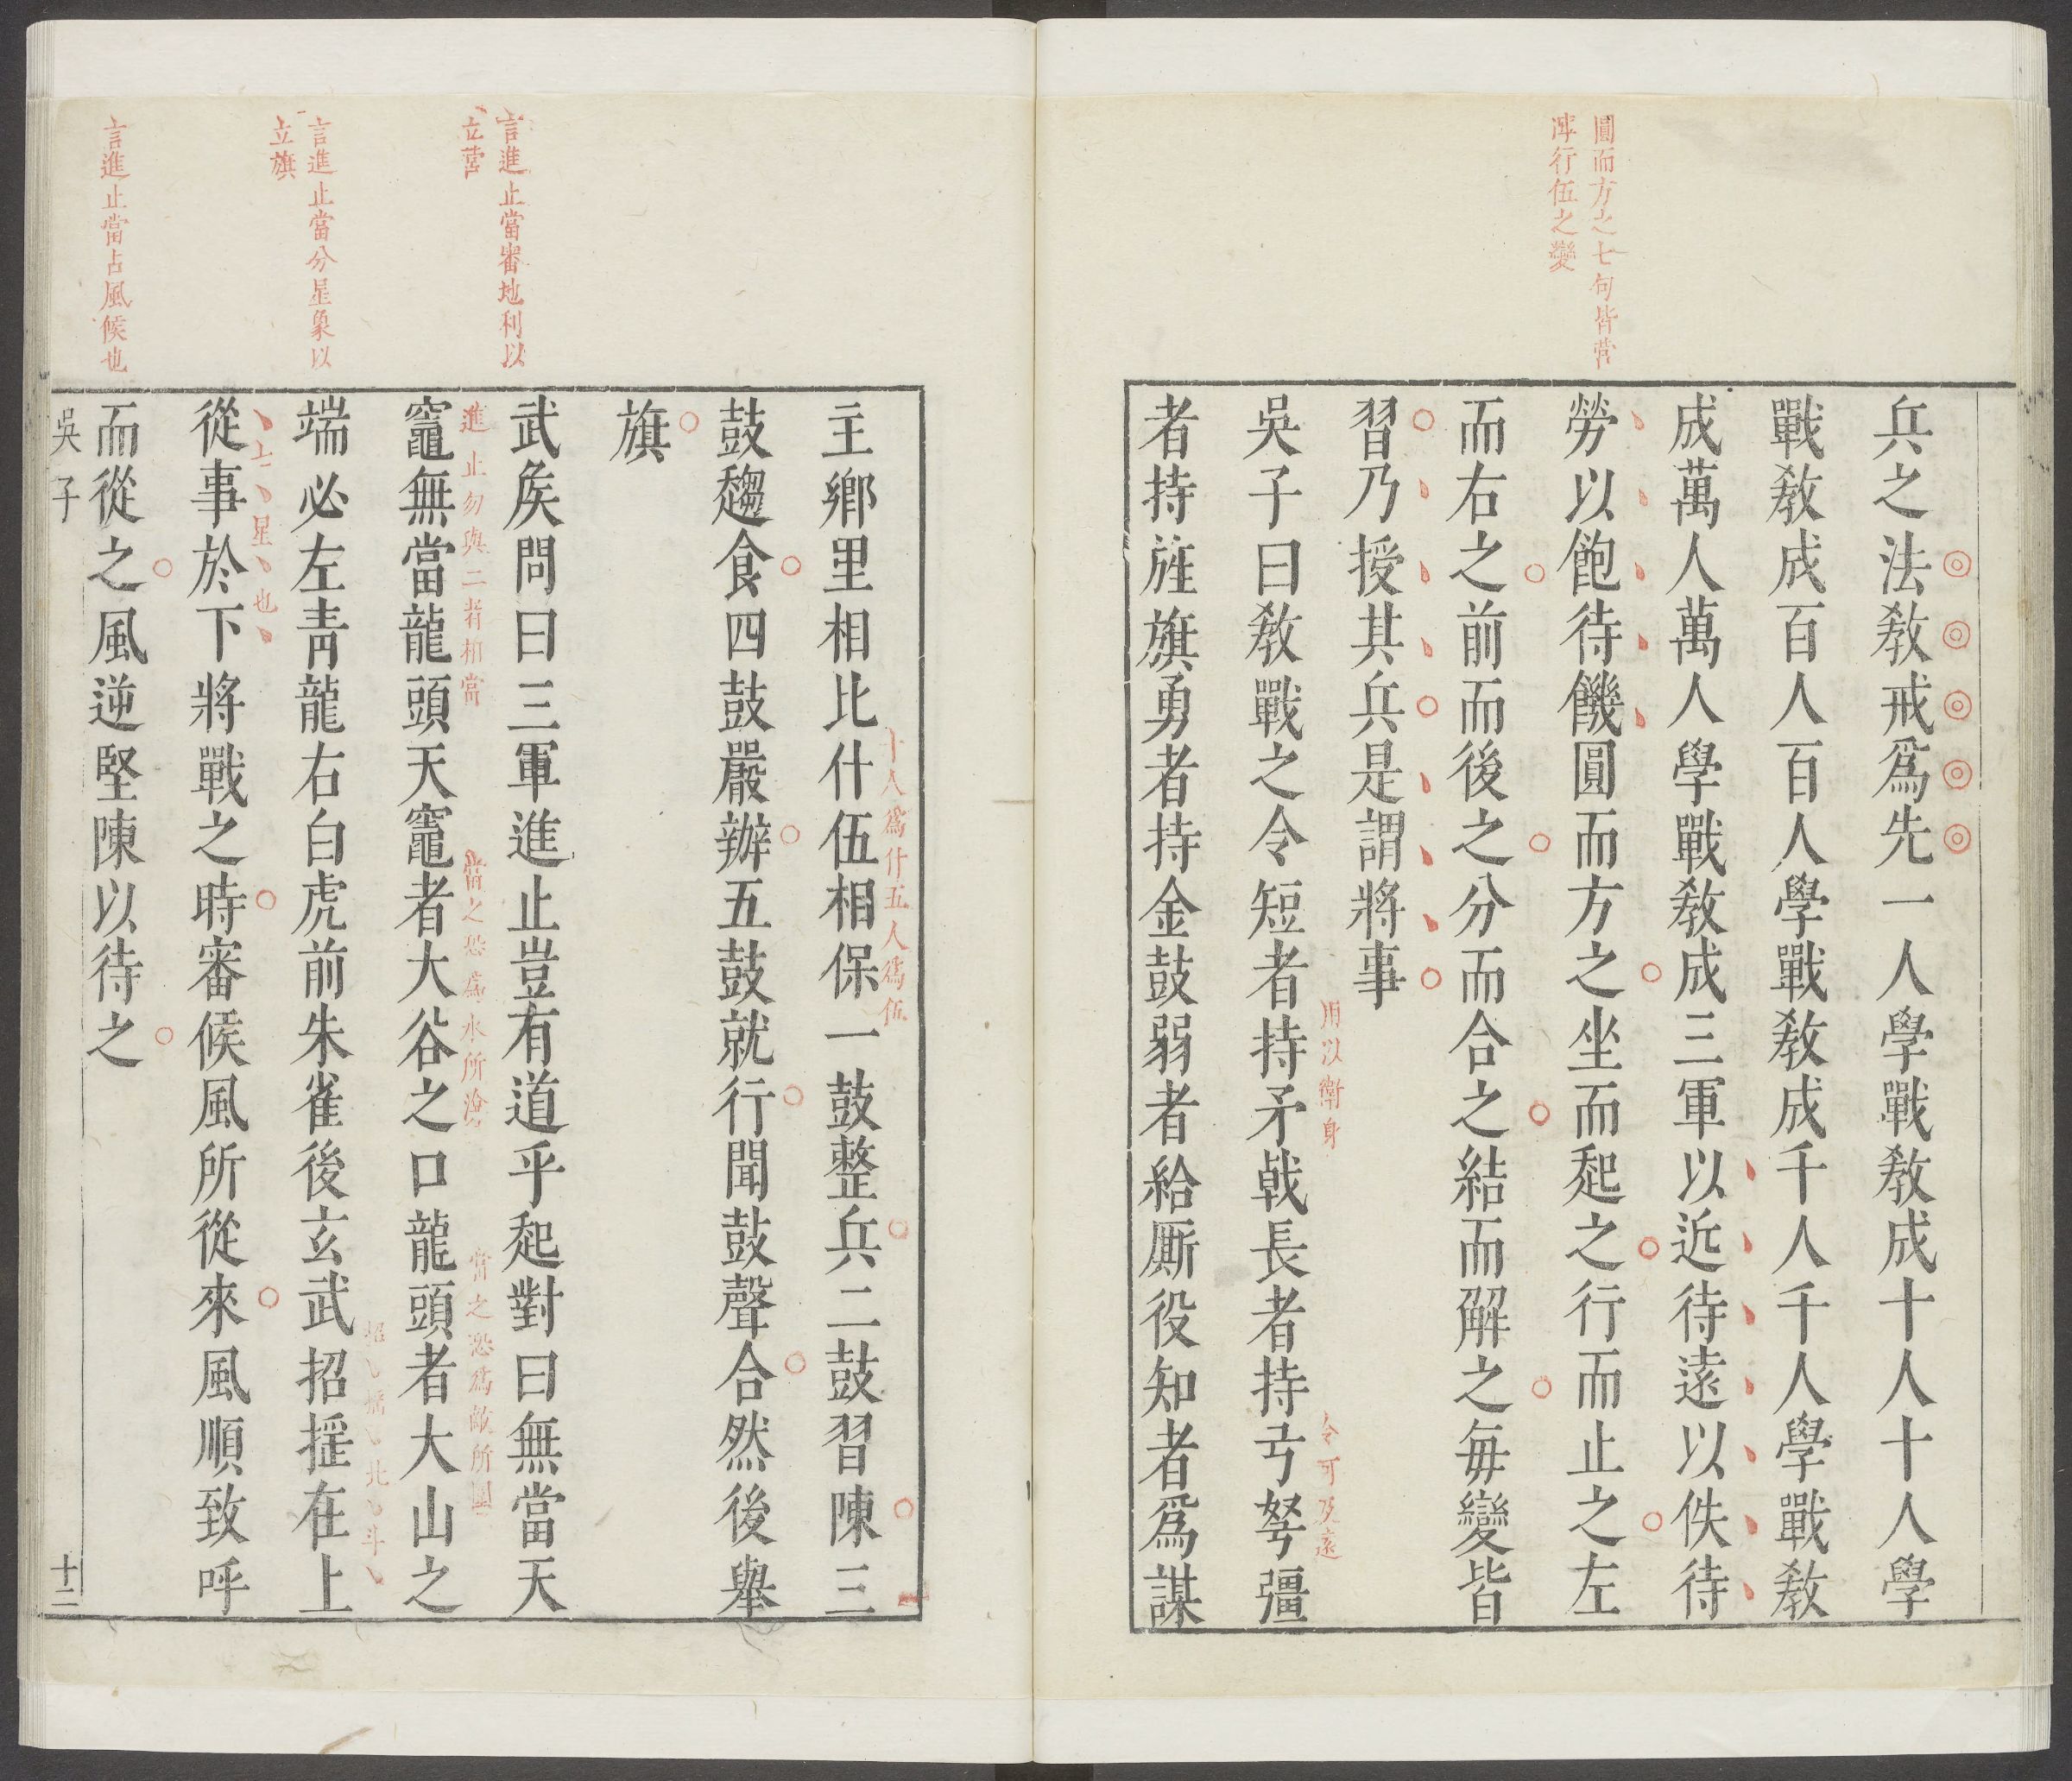 圓而方之七句皆营
陣行伍之變
兵之法敎戒爲先一人學戰敎成十人十人學
戰敎成百人百人學戰敎成千人千人學戰敎
成萬人萬人學戰敎成三軍以近待遠以佚待
勞以飽待饑圓而方之坐而起之行而止之左
而右之前而後之分而合之結而解之每變皆
習乃授其兵是謂將事
用以衛身
令可及遠
吳子曰敎戰之令短者持矛戟長者持弓弩彊
者持旌旗勇者持金鼓弱者給厮役知者爲謀
十人爲什五人爲伍
主鄉里相比什伍相保一鼓整兵二鼓習陳三
鼓趨食四鼓嚴辦五鼓就行聞鼓聲合然後舉
旗
言進止當審地利以
立营
武矦問曰三軍進止豈有道乎起對曰無當天
進止勿與二者相當
當之恐爲水所渰
當之恐爲敵所圍
竈無當龍頭天竈者大谷之口龍頭者大山之
言進止當分星象以
立旗
招搖北斗
端必左靑龍右白虎前朱雀後玄武招搖在上
上星也
從事於下將戰之時審候風所從來風順致呼
言進止當占風候也
而從之風逆堅陳以待之
吳子
十二